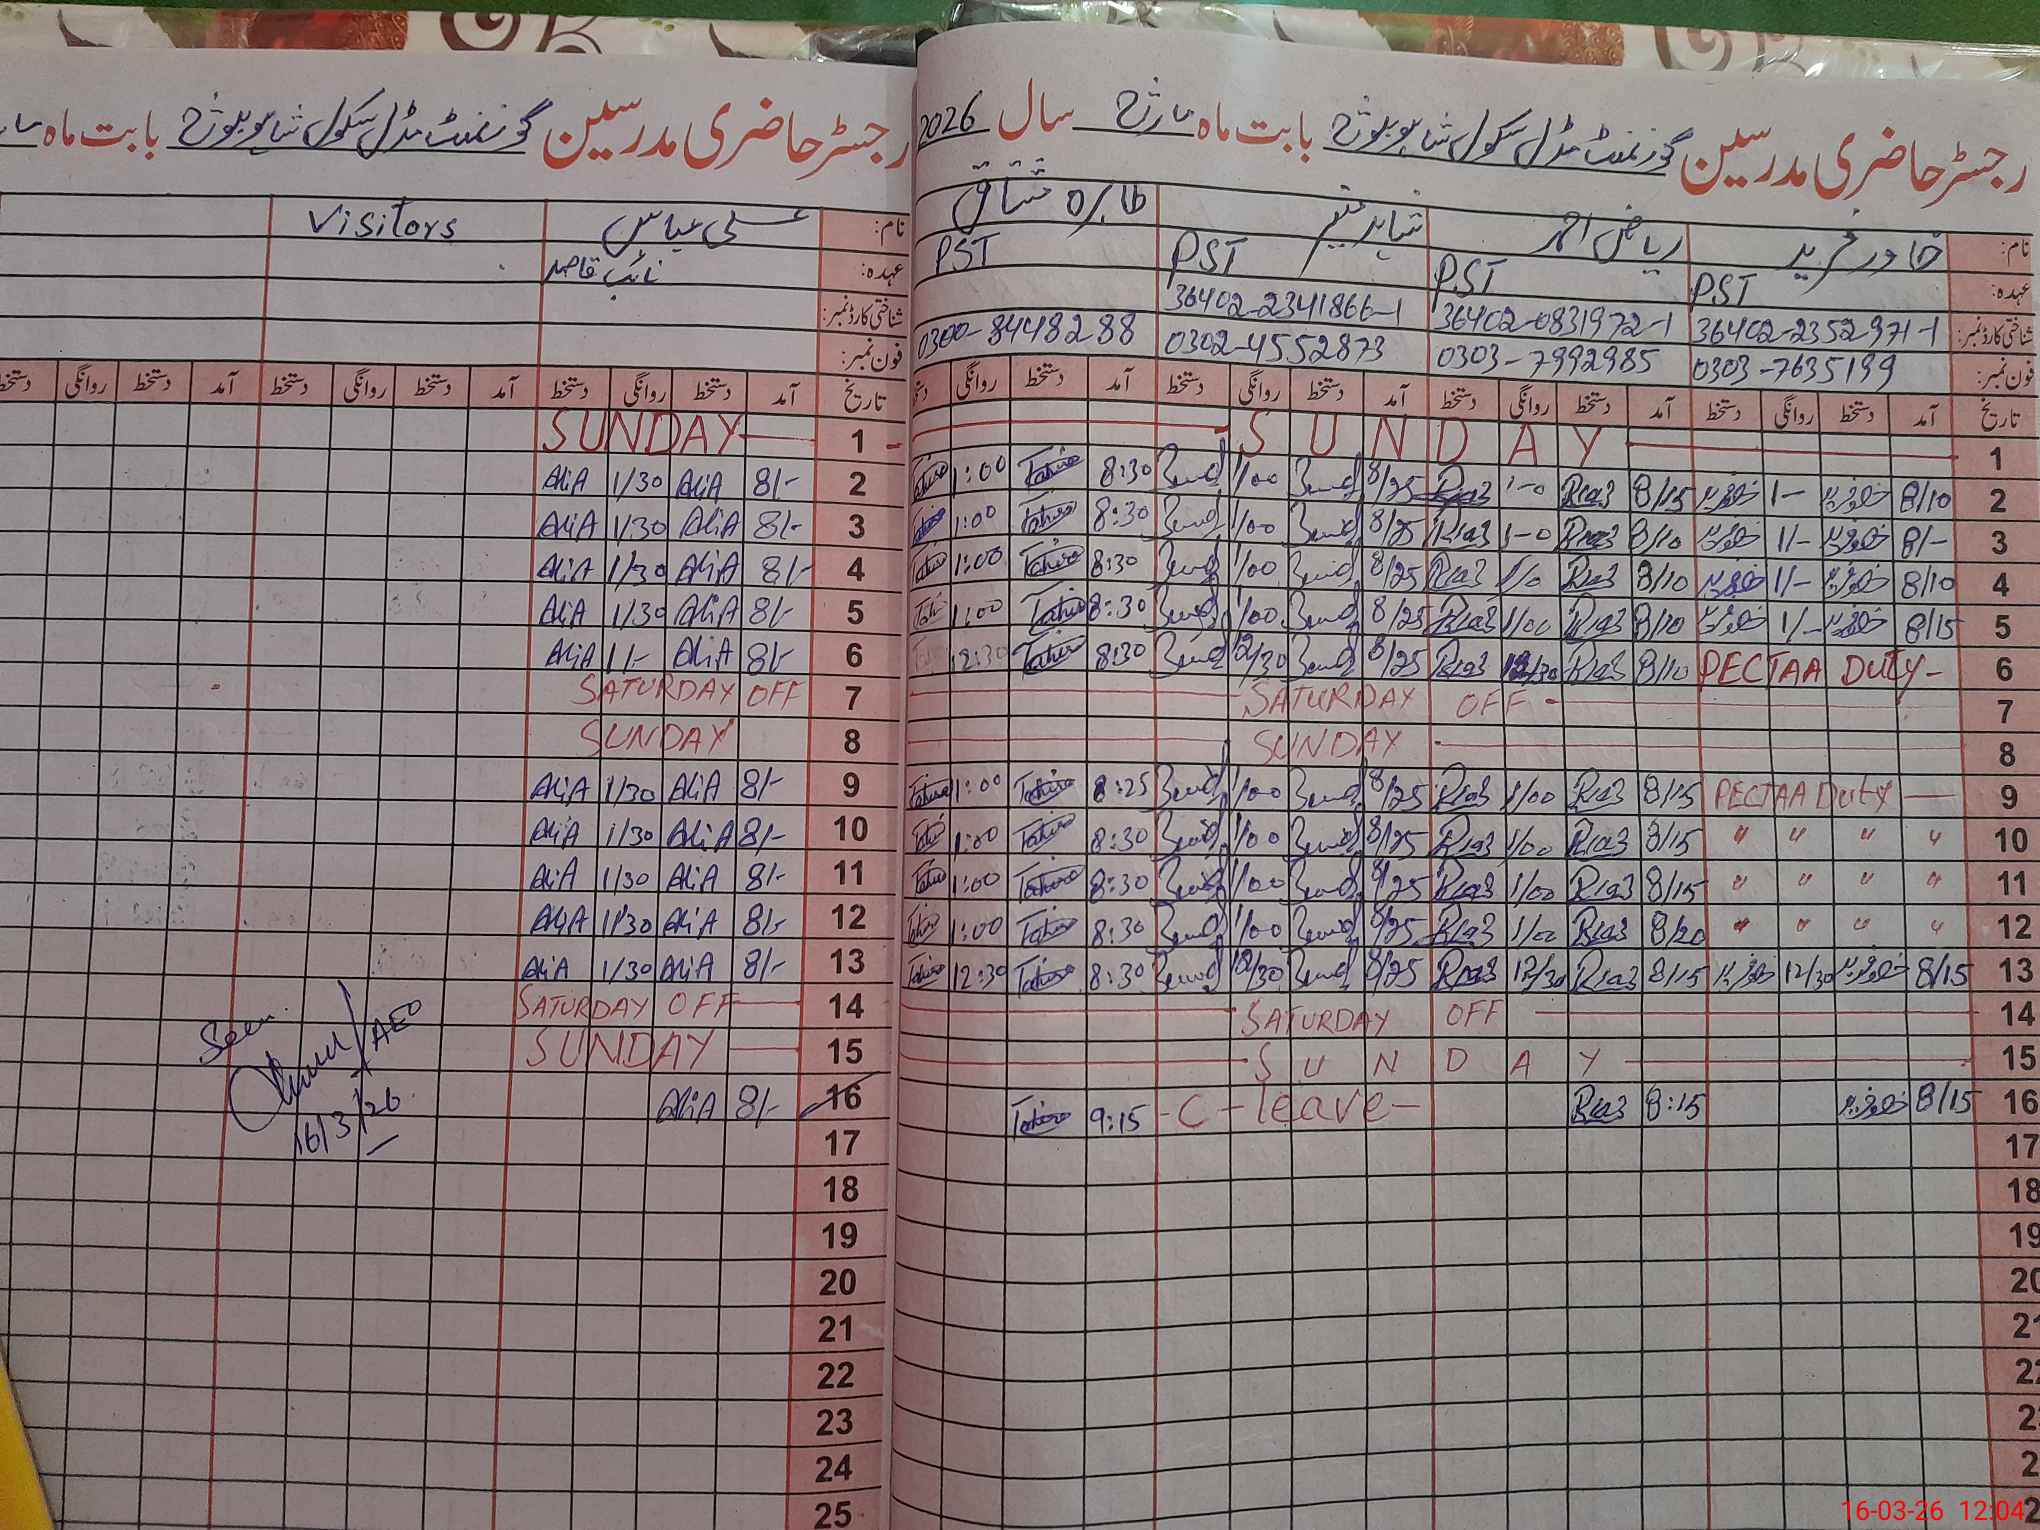 رجسٹر حاضری مدرسین گورنمنٹ مڈل سکول شاہو بلوچ بابت ماہ مارچ سال 2026
نام: خاور فرید ریاض احمد طاہرہ مشتاق
عہدہ: PST PST PST PST
شناختی کارڈ نمبر: 36402-2352971-1 36402-0831972-1 36402-2341866-1
فون نمبر: 0303-7635199 0303-7992985 0302-4552873 0300-8448288
تاریخ آمد دستخط روانگی دستخط آمد دستخط روانگی دستخط آمد دستخط روانگی دستخط آمد دستخط روانگی
1 SUNDAY
2 8/10 1/- 8/15 Riaz 1-0 Riaz 8/25 1/00 8:30 Tahira 1:00 Tahira
3 8/- 1/- 8/10 Riaz 1-0 Riaz 8/25 1/00 8:30 Tahira 1:00 Tahira
4 8/10 1/- 8/10 Riaz 1/0 Riaz 8/25 1/00 8:30 Tahira 1:00 Tahira
5 8/15 1/- 8/10 Riaz 1/00 Riaz 8/25 1/00 8:30 Tahira 1:00
6 PECTAA DUTY- 8/10 Riaz 12/30 Riaz 8/25 12/30 8:30 Tahira 12:30
7 SATURDAY OFF
8 SUNDAY
9 PECTAA Duty 8/15 Riaz 1/00 Riaz 8/25 1/00 8:25 Tahira 1:00 Tahira
10 " " " " 8/15 Riaz 1/00 Riaz 8/25 1/00 8:30 Tahira 1:00
11 " " " " 8/15 Riaz 1/00 Riaz 8/25 1/00 8:30 Tahira 1:00
12 " " " " 8/20 Riaz 1/00 Riaz 8/25 1/00 8:30 Tahira 1:00
13 8/15 12/30 8/15 Riaz 12/30 Riaz 8/25 12/30 8:30 Tahira 12:30 Tahira
14 SATURDAY OFF
15 SUNDAY
16 8/15 8:15 Riaz -C-leave- 9:15 Tahira
17
18
19
20
رجسٹر حاضری مدرسین گورنمنٹ مڈل سکول شاہو بلوچ بابت ماہ
نام: علی عباس Visitors
عہدہ: نائب قاصد
شناختی کارڈ نمبر:
فون نمبر:
تاریخ آمد دستخط روانگی دستخط آمد دستخط روانگی دستخط آمد دستخط روانگی دستخط
1 SUNDAY
2 8/- AliA 1/30 AliA
3 8/- AliA 1/30 AliA
4 8/- AliA 1/30 AliA
5 8/- AliA 1/30 AliA
6 8/- AliA 1/- AliA
7 SATURDAY OFF
8 SUNDAY
9 8/- AliA 1/30 AliA
10 8/- AliA 1/30 AliA
11 8/- AliA 1/30 AliA
12 8/- AliA 1/30 AliA
13 8/- AliA 1/30 AliA
14 SATURDAY OFF
15 SUNDAY
16 8/- AliA
Seen
AEO
16/3/26
17
18
19
20
21
22
23
24
25
16-03-26 12:04